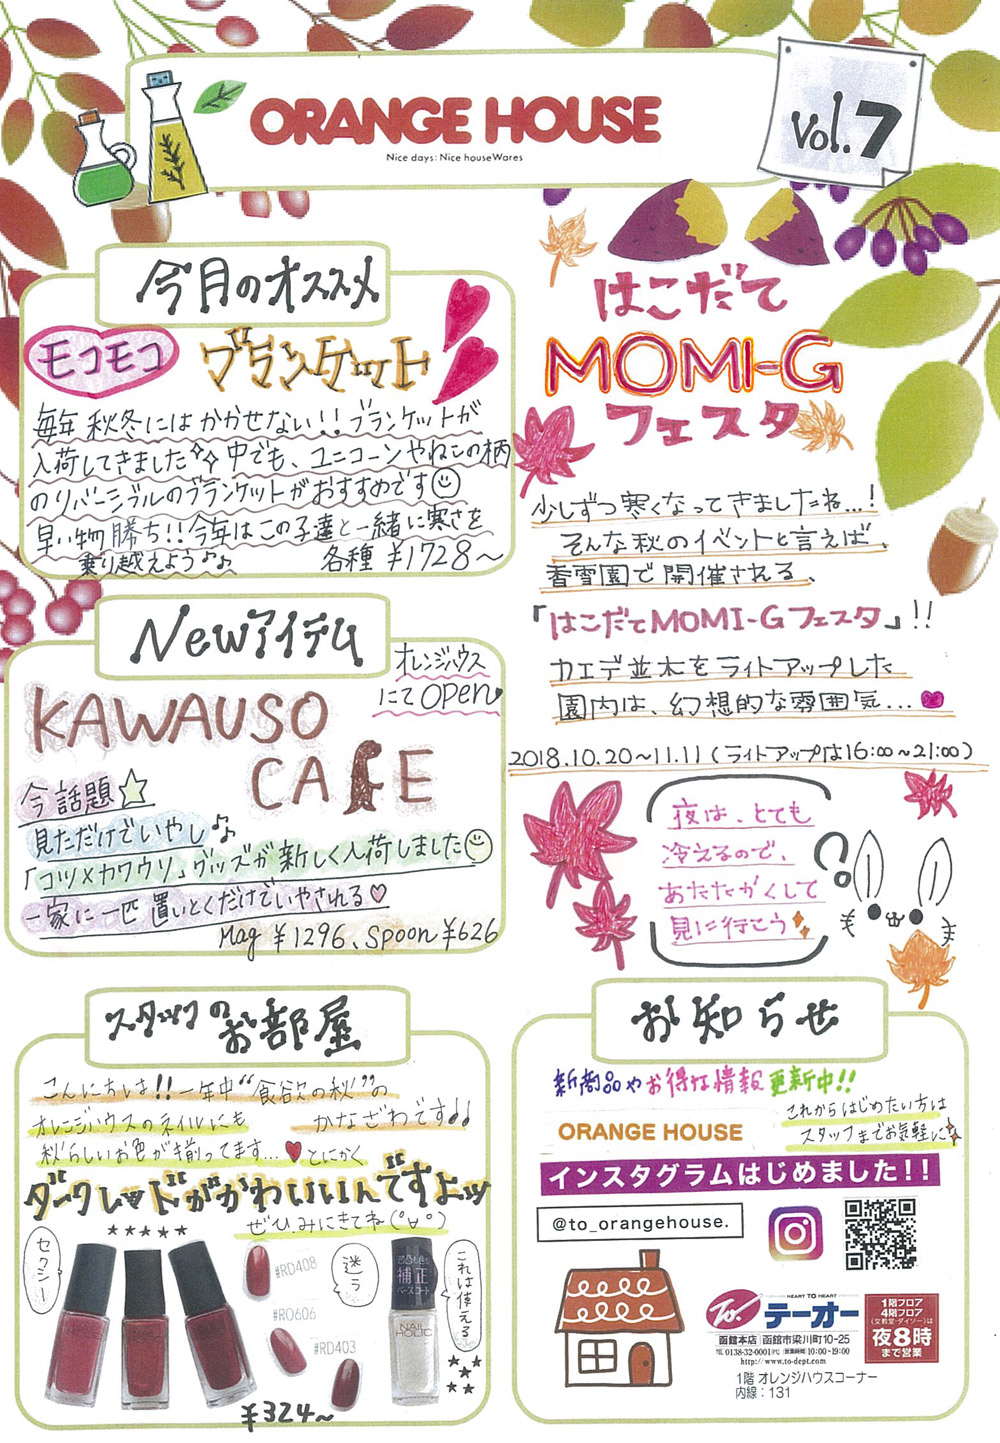 ORANGE HOUSE
Nice days: Nice houseWares
Vol.7
今月のオススメ
モコモコ ブランケット
毎年 秋冬には かかせない!! ブランケットが
入荷してきました 中でも、ユニコーンやねこの柄
のリバーシブルのブランケットがおすすめです
早い物勝ち!! 今年はこの子達と一緒に寒さを
乗り越えよう♪♪ 各種 ¥1728~
Newアイテム
オレンジハウス
にてOPEN
KAWAUSO
CAFE
今話題☆
見ただけでいやし♪
「コツメカワウソ」グッズが新しく入荷しました
一家に一匹 置いとくだけでいやされる♡
Mag ¥1296、Spoon ¥626
スタッフの
お部屋
こんにちは!! 一年中"食欲の秋"の
オレンジハウスのネイルにも かなざわです♪♪
秋らしいお色が揃ってます…♥とにかく
ダークレッドがかわいいんですよッ
★★★★★ ぜひみにきてね(°∀°)
セクシー
#RD408
#RO606
#RD403
迷う
これは使える
凹凸も色も
補正
ベースコート
NAIL
HOLIC
¥324~
はこだて
MOMI-G
フェスタ
少しずつ寒くなってきましたね…!
そんな秋のイベントと言えば、
香雪園で開催される、
「はこだてMOMI-Gフェスタ」!!
カエデ並木をライトアップした
園内は、幻想的な雰囲気…♥
2018.10.20~11.11 (ライトアップは16:00~21:00)
夜は、とても
冷えるので、
あたたかくして
見に行こう
お知らせ
新商品やお得な情報更新中!!
これからはじめたい方は
スタッフまでお気軽に
ORANGE HOUSE
インスタグラムはじめました!!
@to_orangehouse.
HEART TO HEART
To. テーオー
函館本店 函館市梁川町10-25
TEL 0138-32-0001㈹ [営業時間] 10:00~19:00
http://www.to-dept.com
1階フロア
4階フロア
(文教堂・ダイソー)は
夜8時
まで営業
1階 オレンジハウスコーナー
内線:131